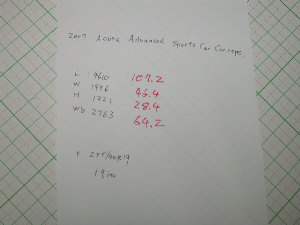 2007 Acura Advanced Sports Car Concept
L 4610 107.2
W 1996 46.4
H 1221 28.4
WB 2763 64.2
F 255/40R19
19 inc